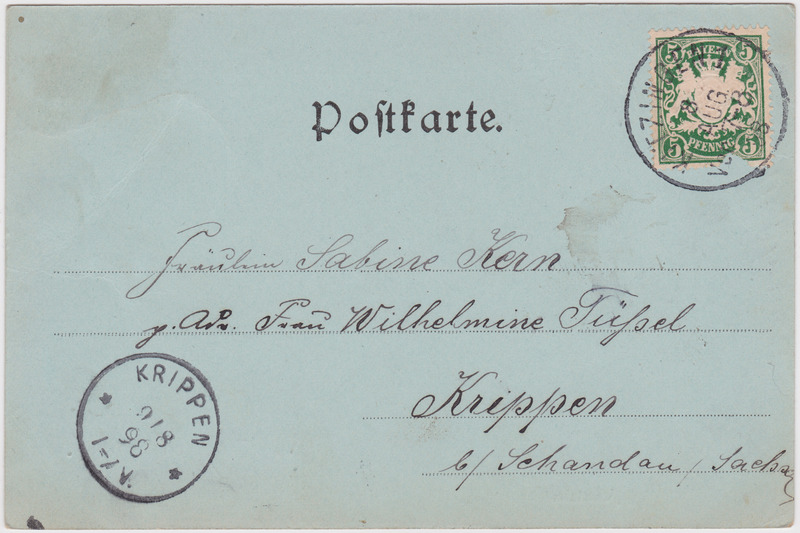 Postkarte.
BAYERN
5 5
5 5
PFENNIG
AUG
Fräulein Sabine Kern
p. Adr. Frau Wilhelmine Tüßel
Krippen
b/ Schandau / Sachs.
KRIPPEN
9/8
98